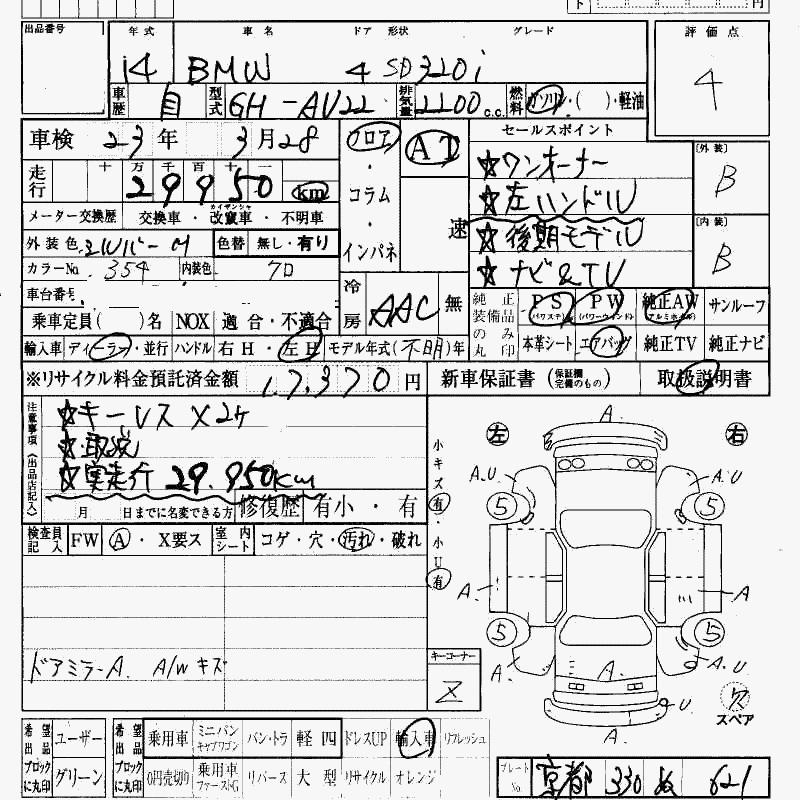 ト 円
出品番号 年式 車名 ドア 形状 グレード 評価点
14 BMW 4 SD 320i 4
車歴 自 型式 GH-AV22 排気量 2200 c.c. 燃料 ガソリン・( )・軽油
車検 23年 3月28 フロア AT セールスポイント
☆ワンオーナー [外装] B
走行 十万千百十一
29950 km コラム ☆左ハンドル
メーター交換歴 交換車・改竄車・不明車 カイザンシャ 速 ☆後期モデル [内装] B
外装色 シルバーM 色替 無し・有り インパネ
カラーNo. 354 内装色 クロ ☆ナビ&TV
車台番号 冷房 AAC 無 純正装備品のみ丸印 PS (パワステ) PW (パワーウインド) 純正AW (アルミホイル) サンルーフ
乗車定員( )名 NOX 適合・不適合
輸入車 ディーラー・並行 ハンドル 右H・左H モデル年式(不明)年 本革シート エアバッグ 純正TV 純正ナビ
※リサイクル料金預託済金額 17,370円 新車保証書 (保証欄完備のもの) 取扱説明書
注意事項(出品店記入) ☆キーレス×2ケ
☆取説
☆実走行 29.950km
月 日までに名変できる方 修復歴 有小・有
検査員記入 FW A・X要ス 室内シート コゲ・穴・汚れ・破れ
小キズ有・小U有
左 A. 右
A.U A.U
5 5
A A
5 5
A. A A.U
A.
ドアミラーA. A/Wキズ
キーコーナー
Z
欠
スペア
希望出品ブロックに丸印 ユーザー グリーン
希望出品ブロックに丸印 乗用車 ミニバンキャブワゴン バン・トラ 軽四 ドレスUP 輸入車 リフレッシュ
0円売切り 乗用車ファーストG リバース 大型 リサイクル オレンジ
プレートNo 京都 330 ぬ 621